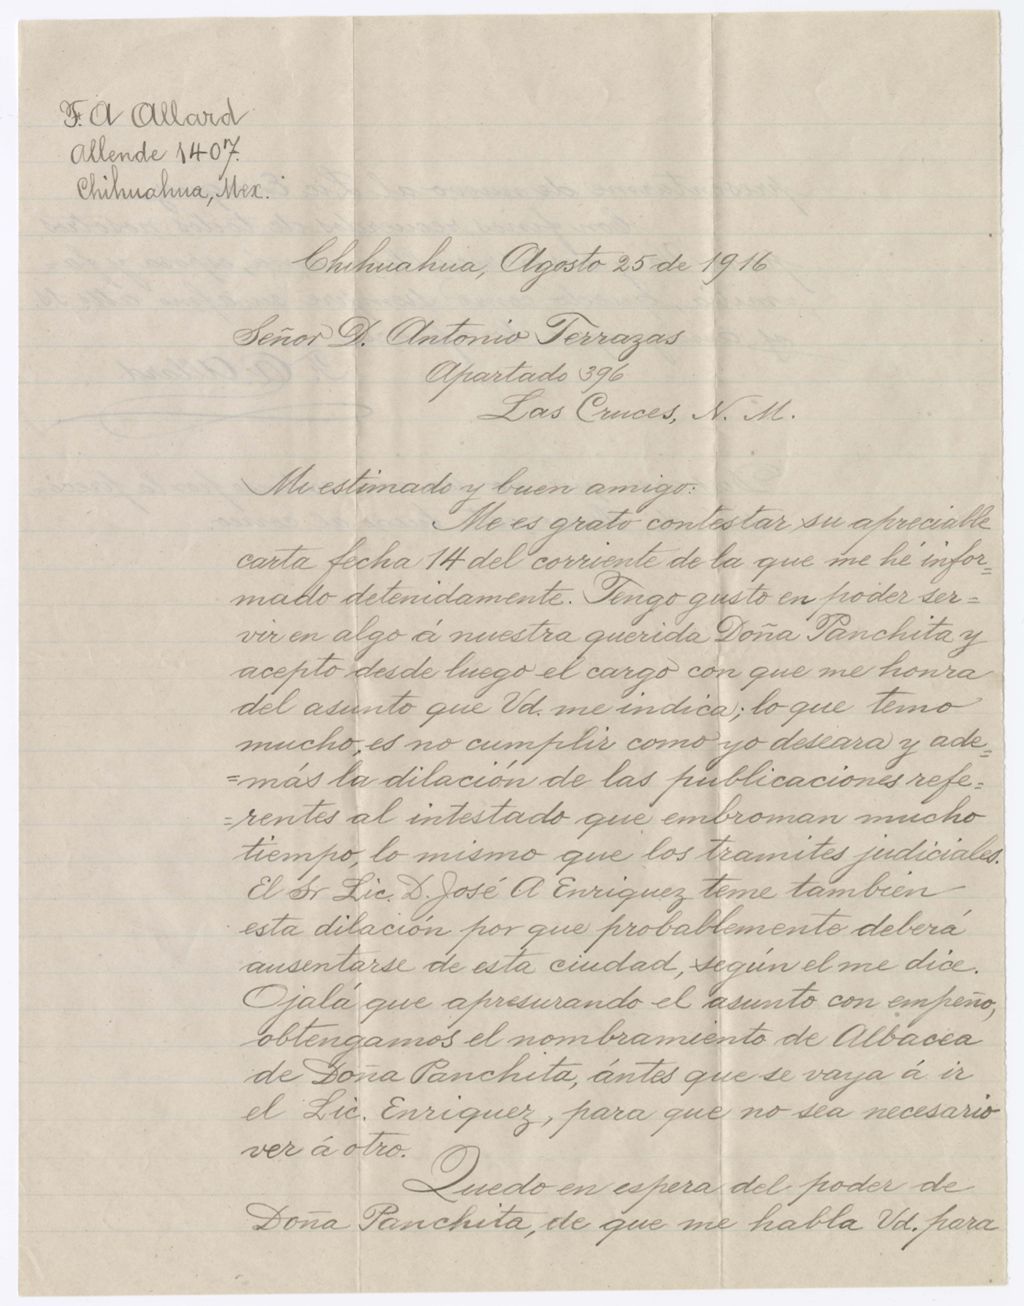 F. A Allard
Allende 1407.
Chihuahua, Mex.
Chihuahua, Agosto 25 de 1916
Señor D. Antonio Terrazas
Apartado 396
Las Cruces, N. M.
Mi estimado y buen amigo:
Me es grato contestar su apreciable
carta fecha 14 del corriente de la que me hé infor=
mado detenidamente. Tengo gusto en poder ser=
vir en algo á nuestra querida Doña Panchita y
acepto desde luego el cargo con que me honra
del asunto que Vd. me indica; lo que temo
mucho, es no cumplir como yo deseara y ade=
=más la dilación de las publicaciones refe=
=rentes al intestado que embroman mucho
tiempo, lo mismo que los tramites judiciales.
El Sr Lic. D. José A Enriquez teme tambien
esta dilación por que probablemente deberá
ausentarse de esta ciudad, según el me dice.
Ojalá que apresurando el asunto con empeño,
obtengamos el nombramiento de Albacea
de Doña Panchita, ántes que se vaya á ir
el Lic. Enriquez, para que no sea necesario
ver á otro.
Quedo en espera del poder de
Doña Panchita, de que me habla Vd. para